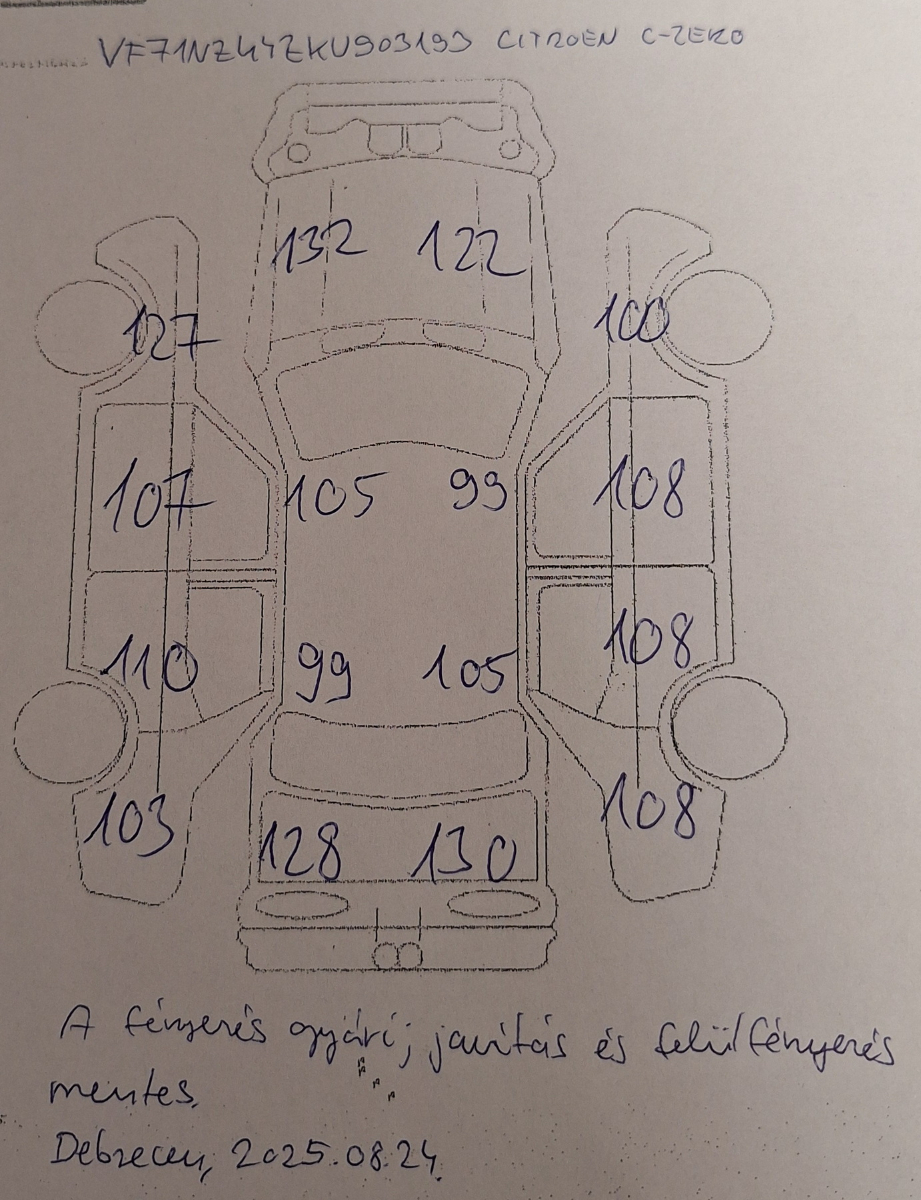 VF71NZ4YZKU903193 CITROEN C-ZERO
132 122
127 100
107 105 99 108
110 99 105 108
103 128 130 108
A fényezés gyári; javítás és felülfényezés
mentes.
Debrecen, 2025.08.24.